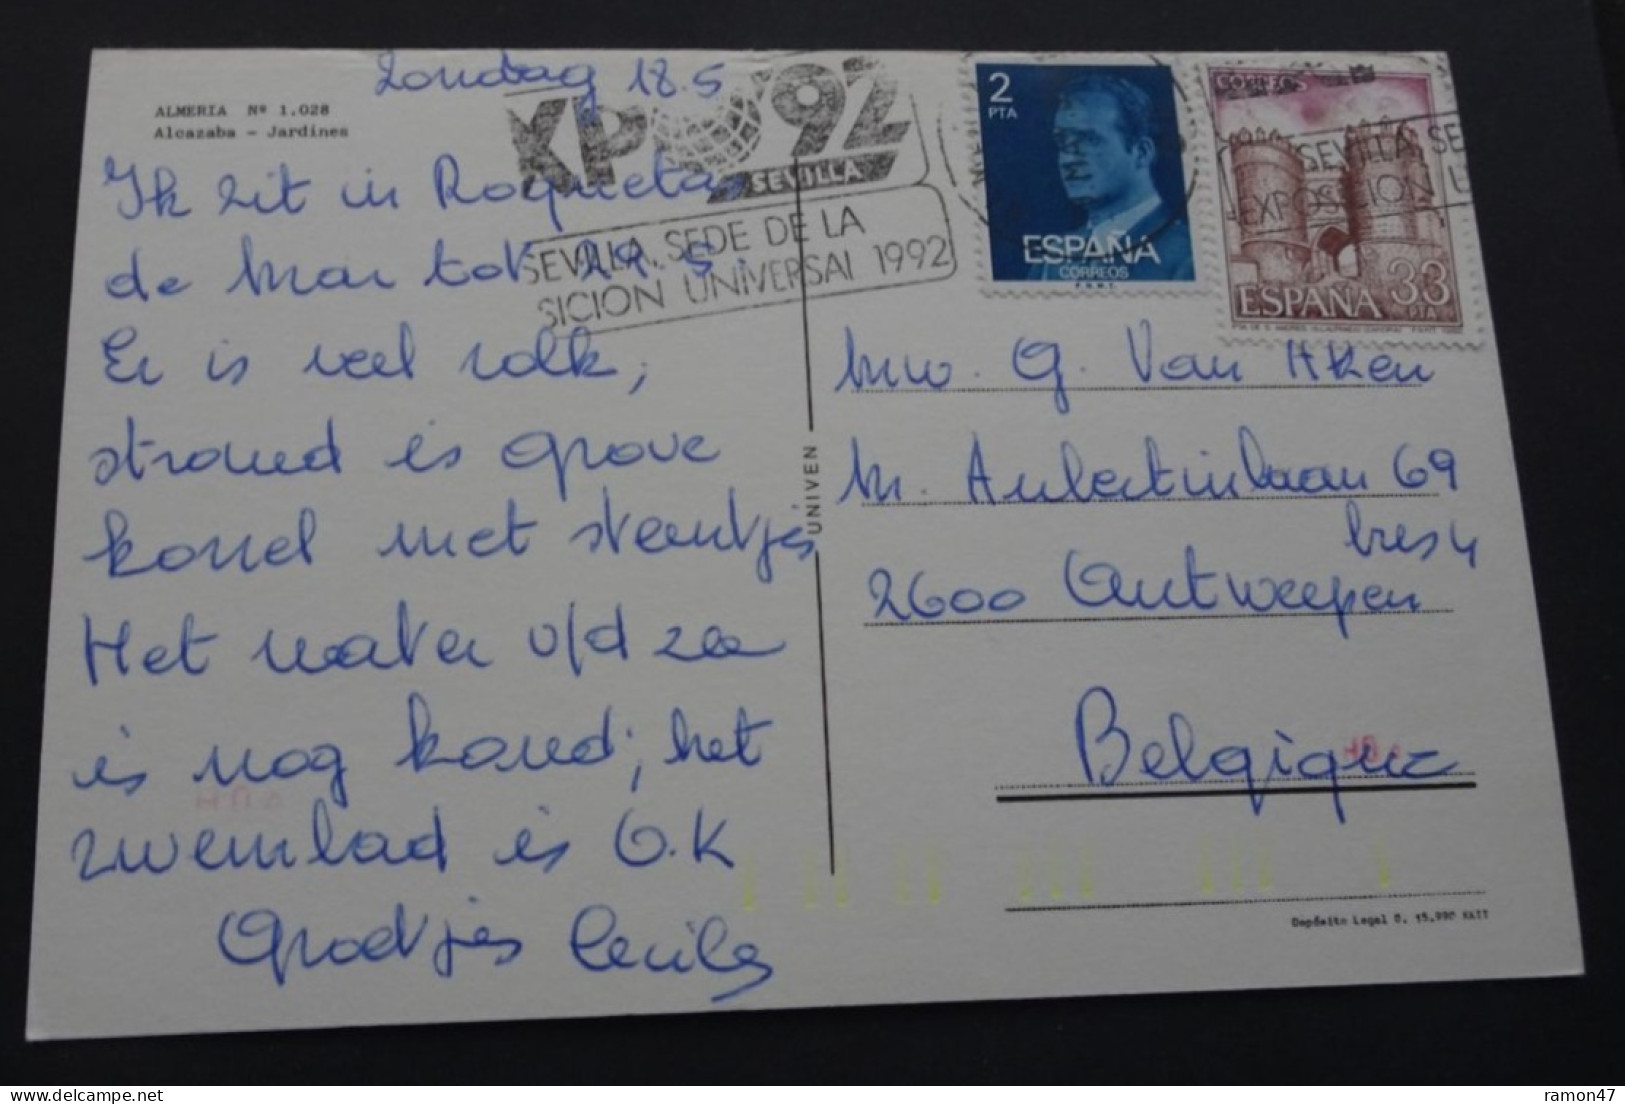 Zondag 18.5
ALMERIA Nº 1.028
Alcazaba - Jardines
XPO'92
SEVILLA
SEVILLA SEDE DE LA
SICION UNIVERSAL 1992
2
PTA
MAY
ESPAÑA
CORREOS
F.N.M.T.
CORREOS
SEVILLA SE
EXPOSICION U
ESPAÑA 33
PTA
Ik zit in Roquetas
de Mar tot 29.5.
Er is veel volk,
strand is grove
korrel met steentjes
Het water v/d zee
is nog koud; het
zwembad is O.K
Groetjes Cecile
UNIVEN
Mw. G. Van Aken
M. Aubertinlaan 69
bus 4
2600 Antwerpen
Belgique
Depósito Legal B. 15.990 XXII
ramon47